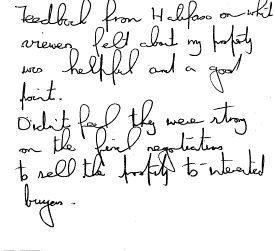 Feedback from Halifax on what
viewer felt about my property
was helpful and a good
point.
Didn't feel they were strong
on the final negotiations
to sell the property to interested
buyers.